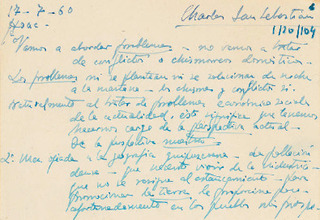 17-7-60 Charlas San Sebastián 6
1/20/104
1º/ Vamos a abordar problemas - no vamos a tratar
de conflictos o chismorreos domésticos.
Los problemas ni se plantean ni se solucionan de noche
a la mañana - los chismes y conflictos si.
Naturalmente al tratar de problemas económico sociales
de la actualidad, esto significa que tenemos
hacernos cargo de la perspectiva actual.
De la perspectiva nuestra
2º Una ojeada a la geografía guipuzcoana - de población
densa - que necesita vivir de la industria
que no se resigna al estancamiento - para
promocionar la tierra le proporciona poco
afortunadamente en los pueblos